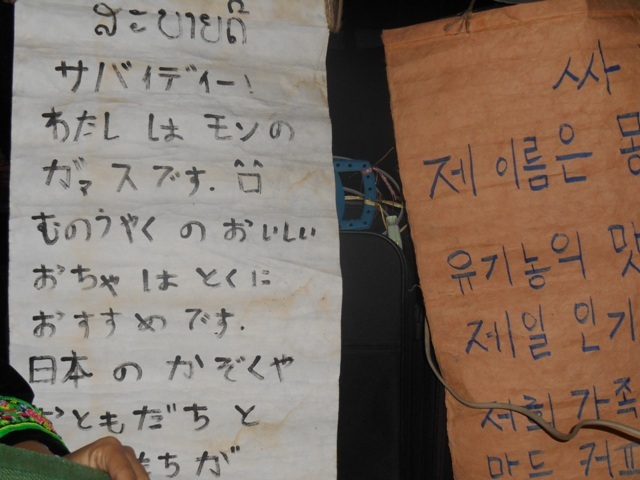 ສະບາຍດີ
サバィディー!
わたし は モン の
ガマ ス です.
むのうやく の おいしい
おちゃ は とくに
おすすめ です.
日本 の かぞくや
おともだち と
もちが
싸
제 이름은 몽
유기농의 맛
제일 인기
저희 가족
마드 커피